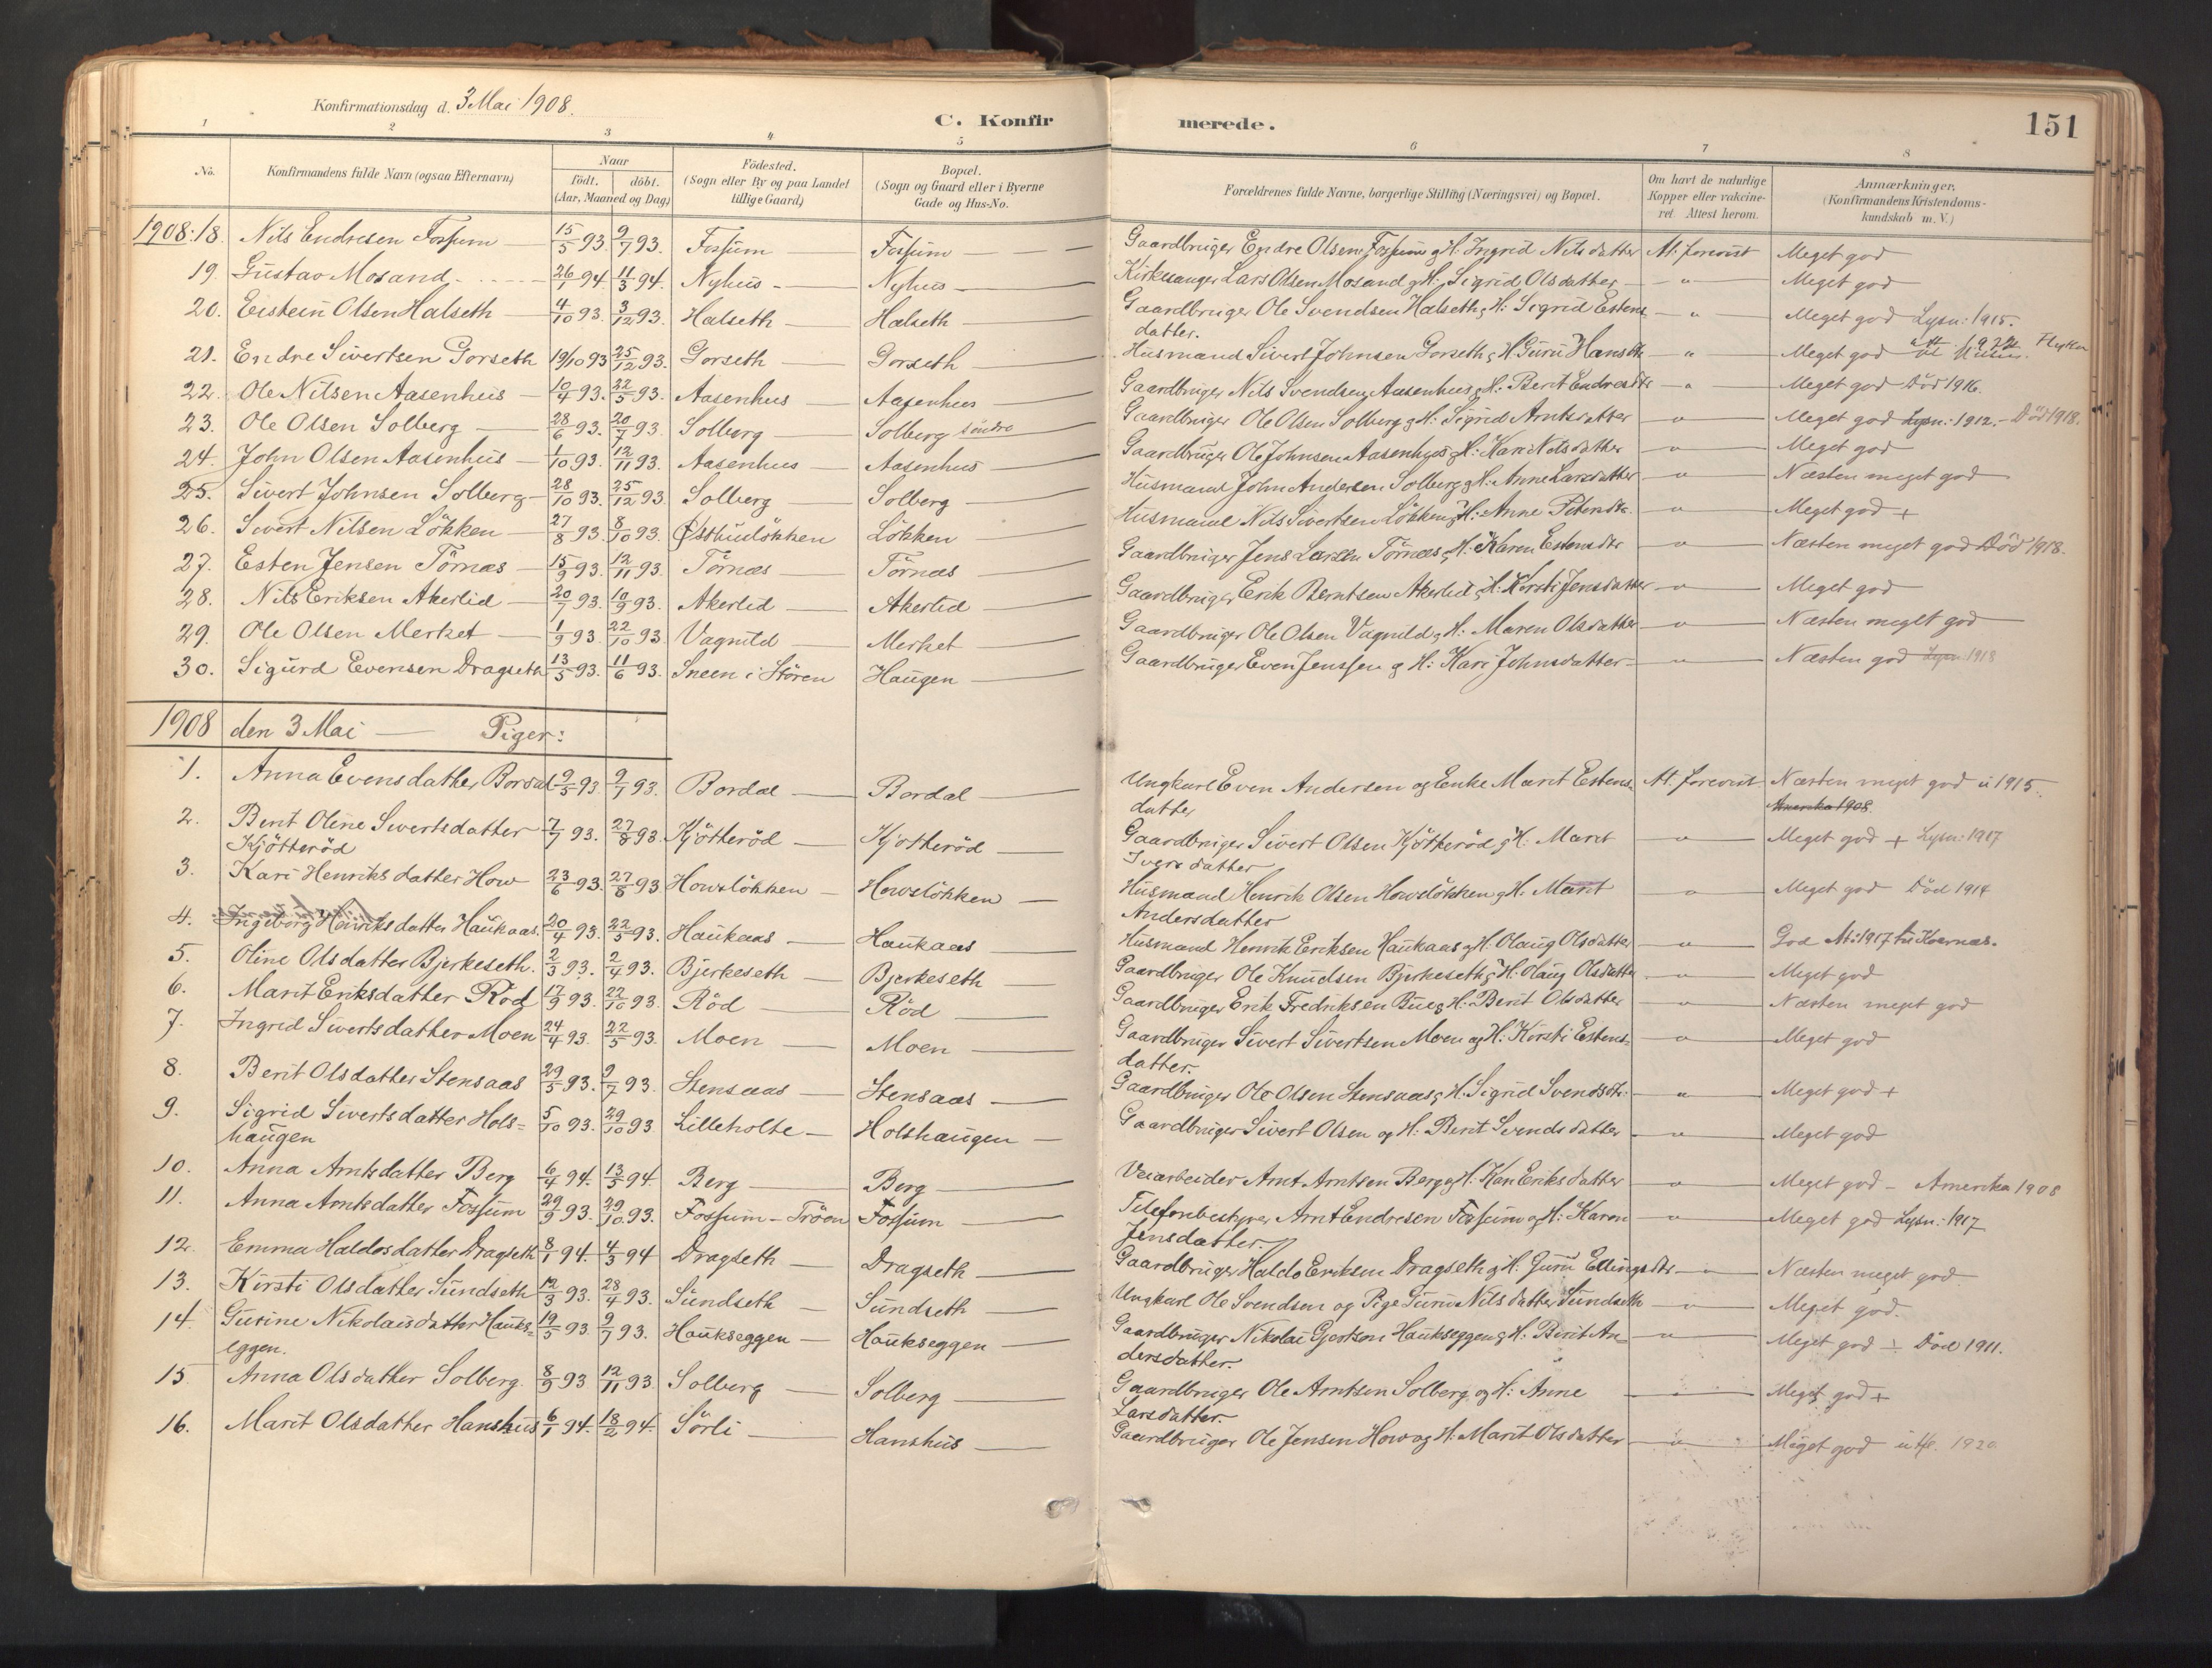 Konfirmationsdag d. 3 Mai 1908.
C. Konfirmerede.
151
1 2 3 4 5 6 7 8
No. | Konfirmandens fulde Navn (ogsaa Efternavn) | Naar födt. | döbt. (Aar, Maaned og Dag) | Födested. (Sogn eller By og paa Landet tillige Gaard) | Bopæl. (Sogn og Gaard eller i Byerne Gade og Hus-No. | Forældrenes fulde Navne, borgerlige Stilling (Næringsvei) og Bopæl. | Om havt de naturlige Kopper eller vakcineret. Attest herom. | Anmærkninger. (Konfirmandens Kristendomskundskab m. V.)
1908: 18. Nils Endresen Fossum 15/5 93 9/7 93. Fossum Fossum Gaardbruger Endre Olsen Fossum g H: Ingrid Nilsdatter At. forevist Meget god
19. Gustav Mosand 26/1 94 11/3 94. Nyhus Nyhus Kirkesanger Lars Olsen Mosand g H: Sigrid Olsdatter " Meget god
20. Eistein Olsen Halseth 4/10 93. 3/12 93. Halseth Halseth Gaardbruger Ole Svendsen Halseth g H: Sigrid Estensdatter. " Meget god Lysn: 1915.
21. Endre Sivertsen Gorseth 19/10 93 25/12 93. Gorseth Gorseth Husmand Sivert Johnsen Gorseth g H: Guru Hansdtr " Meget god att. 1922
22. Ole Nilsen Aasenhus 10/4 93. 22/5 93. Aasenhus Aasenhus Gaardbruger Nils Svendsen Aasenhus g H: Berit Endresdtr " Meget god Död 1916.
23. Ole Olsen Solberg 28/6 93. 20/7 93. Solberg Solberg söndre Gaardbruger Ole Olsen Solberg g H: Sigrid Arntsdatter " Meget god Lysn: 1912. Död 1918.
24. John Olsen Aasenhus 1/10 93. 12/11 93. Aasenhus Aasenhus Gaardbruger Ole Johnsen Aasenhus g H: Kari Nilsdatter " Meget god
25. Sivert Johnsen Solberg 28/10 93. 25/12 93. Solberg Solberg Husmand John Andersen Solberg g H: Anne Larsdatter " Næsten meget god
26. Sivert Nilsen Lökken 27/8 93. 8/10 93. Østhuslökken Lökken Husmand Nils Sivertsen Lökken g H: Anne Petersdtr. " Meget god +
27. Esten Jensen Törnæs 15/9 93. 12/11 93. Törnæs Törnæs Gaardbruger Jens Larsen Törnæs g H: Karen Estensdtr " Næsten meget god Död 1918.
28. Nils Eriksen Akerlid 20/7 93. 10/9 93. Akerlid Akerlid Gaardbruger Erik Berntsen Akerlid g H: Kirsti Jensdatter " Meget god
29. Ole Olsen Merket 1/9 93. 22/10 93 Vagnild Merket Gaardbruger Ole Olsen Vagnild g H: Maren Olsdatter " Næsten meget god
30. Sigurd Evensen Dragseth 13/5 93. 11/6 93. Sneen i Stören Haugen Gaardbruger Even Jenssen g H: Kari Johnsdatter " Næsten god Lysn: 1918
1908 den 3 Mai — Piger:
1. Anna Evensdatter Bordal 9/5 93 9/7 93. Bordal Bordal Ungkarl Even Andersen og Enke Marit Estensdatter At. forevist Næsten meget god u 1915. Amerika 1908
2. Berit Oline Sivertsdatter Kjötteröd 7/7 93. 27/8 93. Kjötteröd Kjötteröd Gaardbruger Sivert Olsen Kjötteröd g H: Marit Iversdatter " Meget god + Lysn: 1917
3. Kari Henriksdatter How 23/6 93. 27/8 93 Howslökken Howslökken Husmand Henrik Olsen Howslökken g H: Marit Andersdatter " Meget god Död 1914
4. Ingeborg Henriksdatter Haukaas. 20/4 93. 22/5 93. Haukaas Haukaas Husmand Henrik Eriksen Haukaas og H: Olaug Olsdatter " God At: 1917 til
5. Oline Olsdatter Bjerkeseth. 2/3 93. 2/4 93. Bjerkeseth Bjerkeseth Gaardbruger Ole Knudsen Bjerkeseth g H: Olaug Olsdatter " Meget god
6. Marit Eriksdatter Röd 17/9 93. 22/10 93. Röd Röd Gaardbruger Erik Fredriksen Bue g H: Berit Olsdatter " Næsten meget god
7. Ingrid Sivertsdatter Moen 24/4 93. 22/5 93. Moen Moen Gaardbruger Sivert Sivertsen Moen og H: Kirsti Estensdatter. " Meget god
8. Berit Olsdatter Stensaas 29/5 93. 9/7 93. Stensaas Stensaas Gaardbruger Ole Olsen Stensaas g H: Sigrid Svendsdtr: " Meget god +
9. Sigrid Sivertsdatter Holshaugen 5/10 93. 29/10 93 Lilleholte Holshaugen Gaardbruger Sivert Olsen og H: Berit Svendsdatter " Meget god
10. Anna Arntsdatter Berg 6/4 94. 13/5 94. Berg Berg Veiarbeider Arnt Arntsen Berg g H: Kari Eriksdatter " Meget god - Amerika 1908
11. Anna Arntsdatter Fossum 29/9 93. 29/10 93. Fossum-Tröen Fossum Telefonbestyrer Arnt Endresen Fossum og H: Karen Jensdatter. " Meget god Lysn: 1917
12. Emma Haldosdatter Dragseth 8/1 94. 4/3 94 Dragseth Dragseth Gaardbruger Haldo Eriksen Dragseth g H: Guru Ellingsdtr " Næsten meget god
13. Kirsti Olsdatter Sundseth 12/3 93. 28/4 93. Sundseth Sundseth Ungkarl Ole Svendsen og Pige Guru Nilsdatter Sundseth " Meget god.
14. Gurine Nikolaisdatter Haukseggen. 19/5 93. 9/7 93. Haukseggen Haukseggen Gaardbruger Nikolai Gjertsen Haukseggen g H: Berit Andersdatter. " Meget god + Död 1911.
15 Anna Olsdatter Solberg. 8/9 93 12/11 93. Solberg Solberg Gaardbruger Ole Arntsen Solberg og H: Anne Larsdatter. " Meget god +
16. Marit Olsdatter Hanshus 6/1 94. 18/2 94. Sörli Hanshus Gaardbruger Ole Jensen How og H: Marit Olsdatter " Meget god utfl. 1920